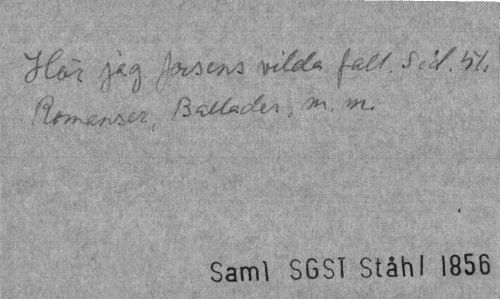 Hör jag forsens vilda fall. Sid. 51.
Romanser, Ballader, m. m.
Saml SGST Ståhl 1856